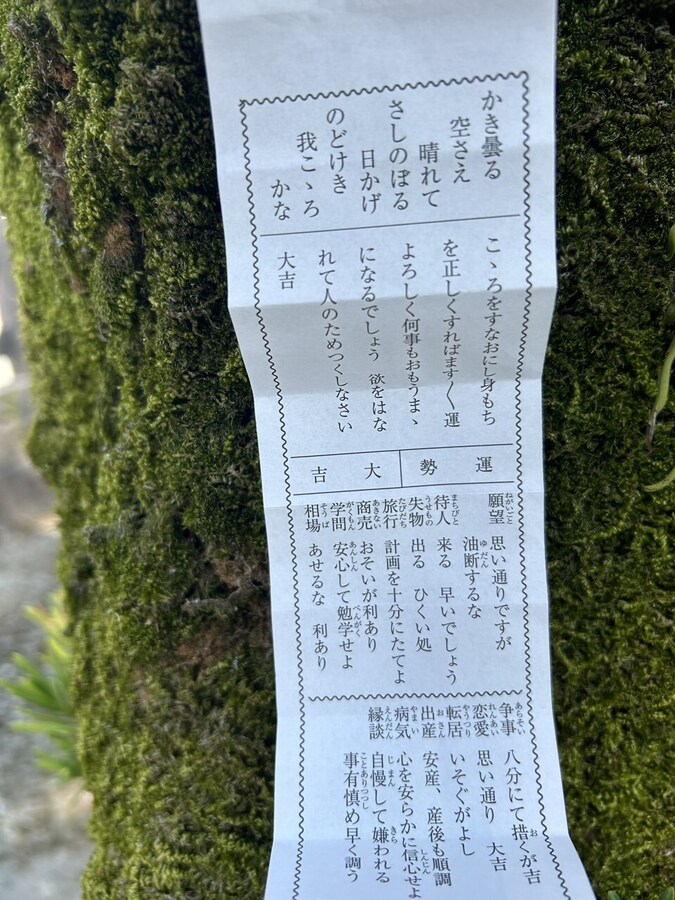 かき曇る
空さえ
晴れて
さしのぼる
日かげ
のどけき
我こゝろ
かな
こゝろをすなおにし身もち
を正しくすればます〳〵運
よろしく何事もおもうまゝ
になるでしょう 欲をはな
れて人のためつくしなさい
大吉
運勢 大吉
願望 思い通りですが
油断するな
待人 来る 早いでしょう
失物 出る ひくい処
旅行 計画を十分にたてよ
商売 おそいが利あり
学問 安心して勉学せよ
相場 あせるな 利あり
争事 八分にて措くが吉
恋愛 思い通り 大吉
転居 いそぐがよし
出産 安産、産後も順調
病気 心を安らかに信心せよ
縁談 自慢して嫌われる
事有慎め早く調う